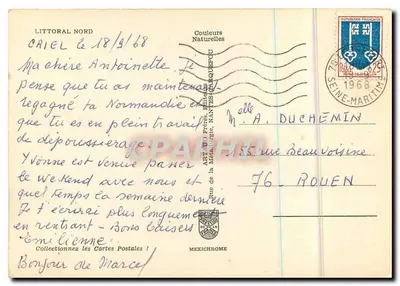 LITTORAL NORD
Couleurs
Naturelles
CRIEL le 18/9/68
Ma chère Antoinette Je
pense que tu as maintenant
regagné ta Normandie et
que tu es en plein travail
de dépoussiérage
Yvonne est venue passer
le Wekend avec nous et
quel temps la semaine dernière
Je t'écrirai plus longuement
en rentrant - Bons baisers
Emilienne
Collectionnez les Cartes Postales !
Bonjour de Marcel
MEXICHROME
REPUBLIQUE FRANÇAISE
1968
SEINE-MARITIME
Melle A. DUCHEMIN
55 rue Beauvoisine
76 - ROUEN